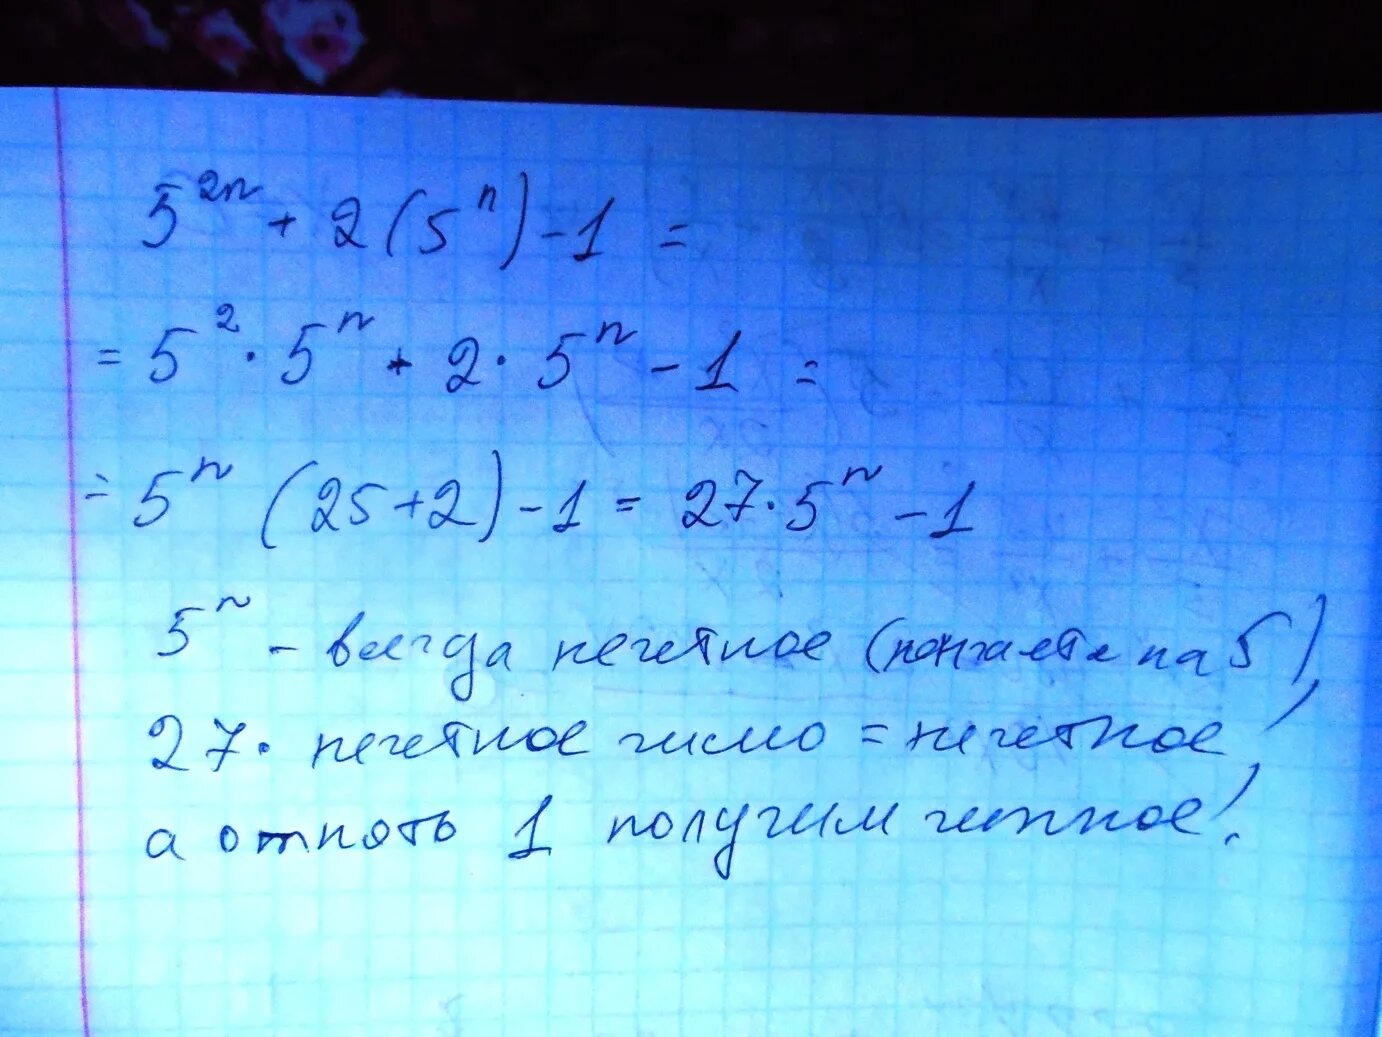 5²ⁿ + 2(5ⁿ) - 1 =
= 5² · 5ⁿ + 2 · 5ⁿ - 1 =
= 5ⁿ (25+2) - 1 = 27 · 5ⁿ - 1
5ⁿ - всегда нечетное (кончается на 5),
27 · нечетное число = нечетное,
а отнять 1 получим четное!